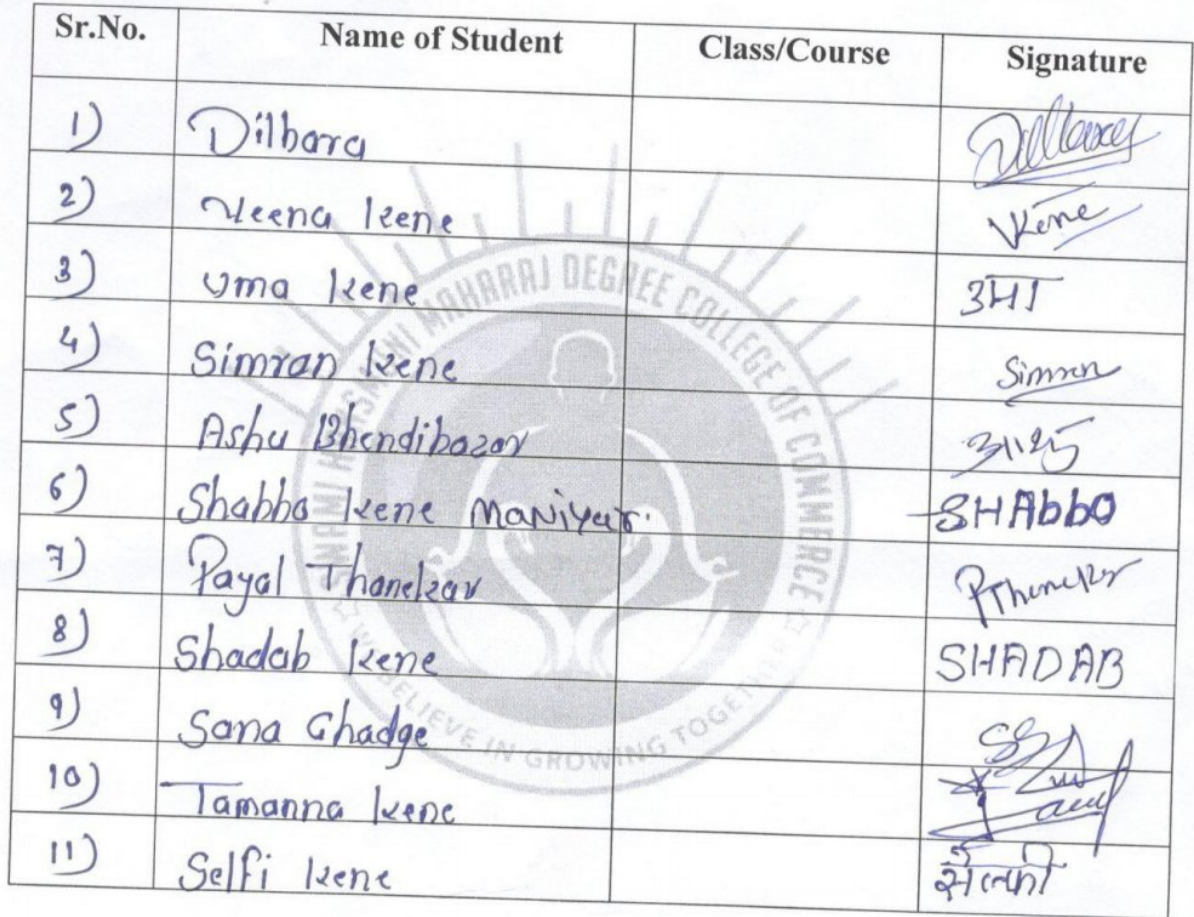 Sr.No. Name of Student Class/Course Signature
1) Dilbara
2) Veena Kene VKene
3) Uma Kene उमा
4) Simran Kene Simran
5) Ashu Bhendibazar आशु
6) Shabbo Kene Maniyar. SHAbbo
7) Payal Thanekar PThanekar
8) Shadab Kene SHADAB
9) Sana Ghadge
10) Tamanna Kene
11) Selfi Kene सेल्फी
SWAMI HANSMUNI MAHARAJ DEGREE COLLEGE OF COMMERCE
WE BELIEVE IN GROWING TOGETHER